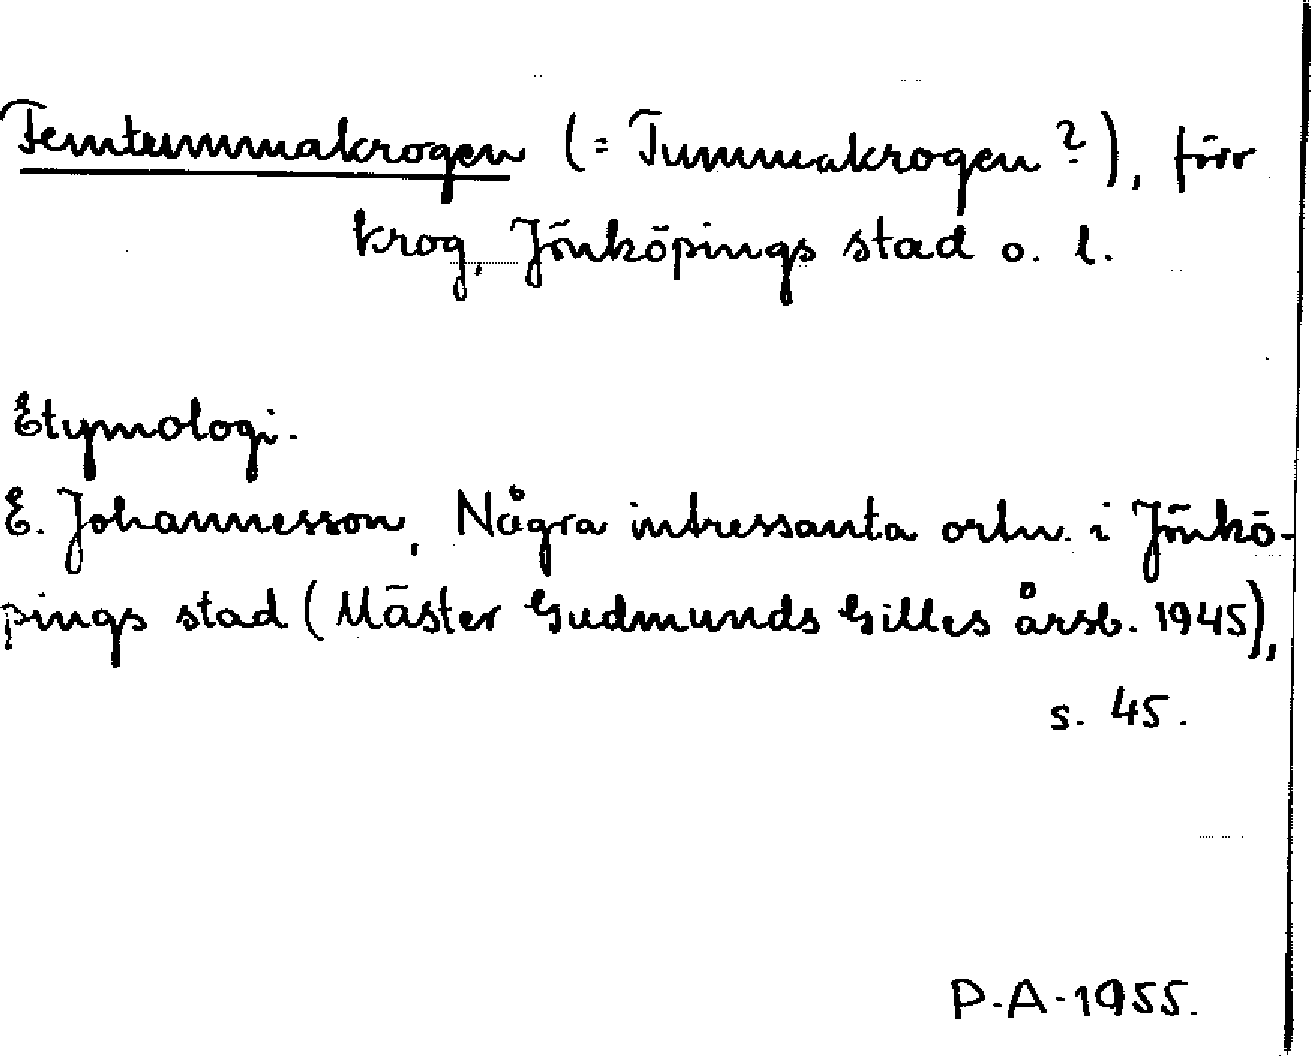 Femtummakrogen (= Tummakrogen?), förr
krog, Jönköpings stad o. l.
Etymologi.
E. Johannesson, Några intressanta ortn. i Jönkö-
pings stad (Mäster Gudmunds Gilles årsb. 1945),
s. 45.
P-A-1955.